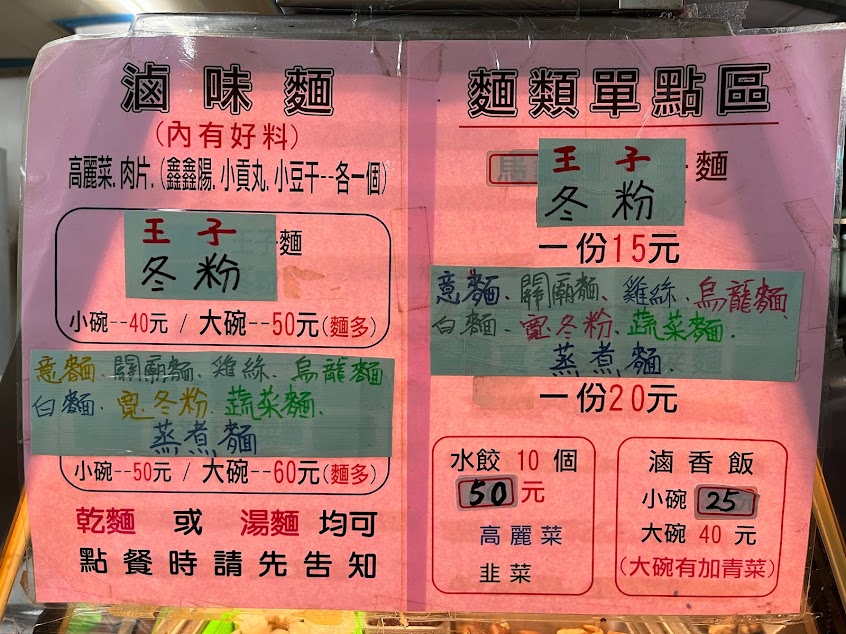 滷味麵
(內有好料)
高麗菜.肉片.(鑫鑫腸.小貢丸.小豆干--各一個)
王子 麵
冬粉
小碗--40元 / 大碗--50元(麵多)
意麵、關廟麵、雞絲、烏龍麵
白麵、寬冬粉、蔬菜麵、
蒸煮麵
小碗--50元 / 大碗--60元(麵多)
乾麵 或 湯麵 均可
點餐時請先告知
麵類單點區
王子 麵
冬粉
一份15元
意麵、關廟麵、雞絲、烏龍麵
白麵、寬冬粉、蔬菜麵、
蒸煮麵、
一份20元
水餃 10 個
50 元
高麗菜
韭菜
滷香飯
小碗 25
大碗 40 元
(大碗有加青菜)